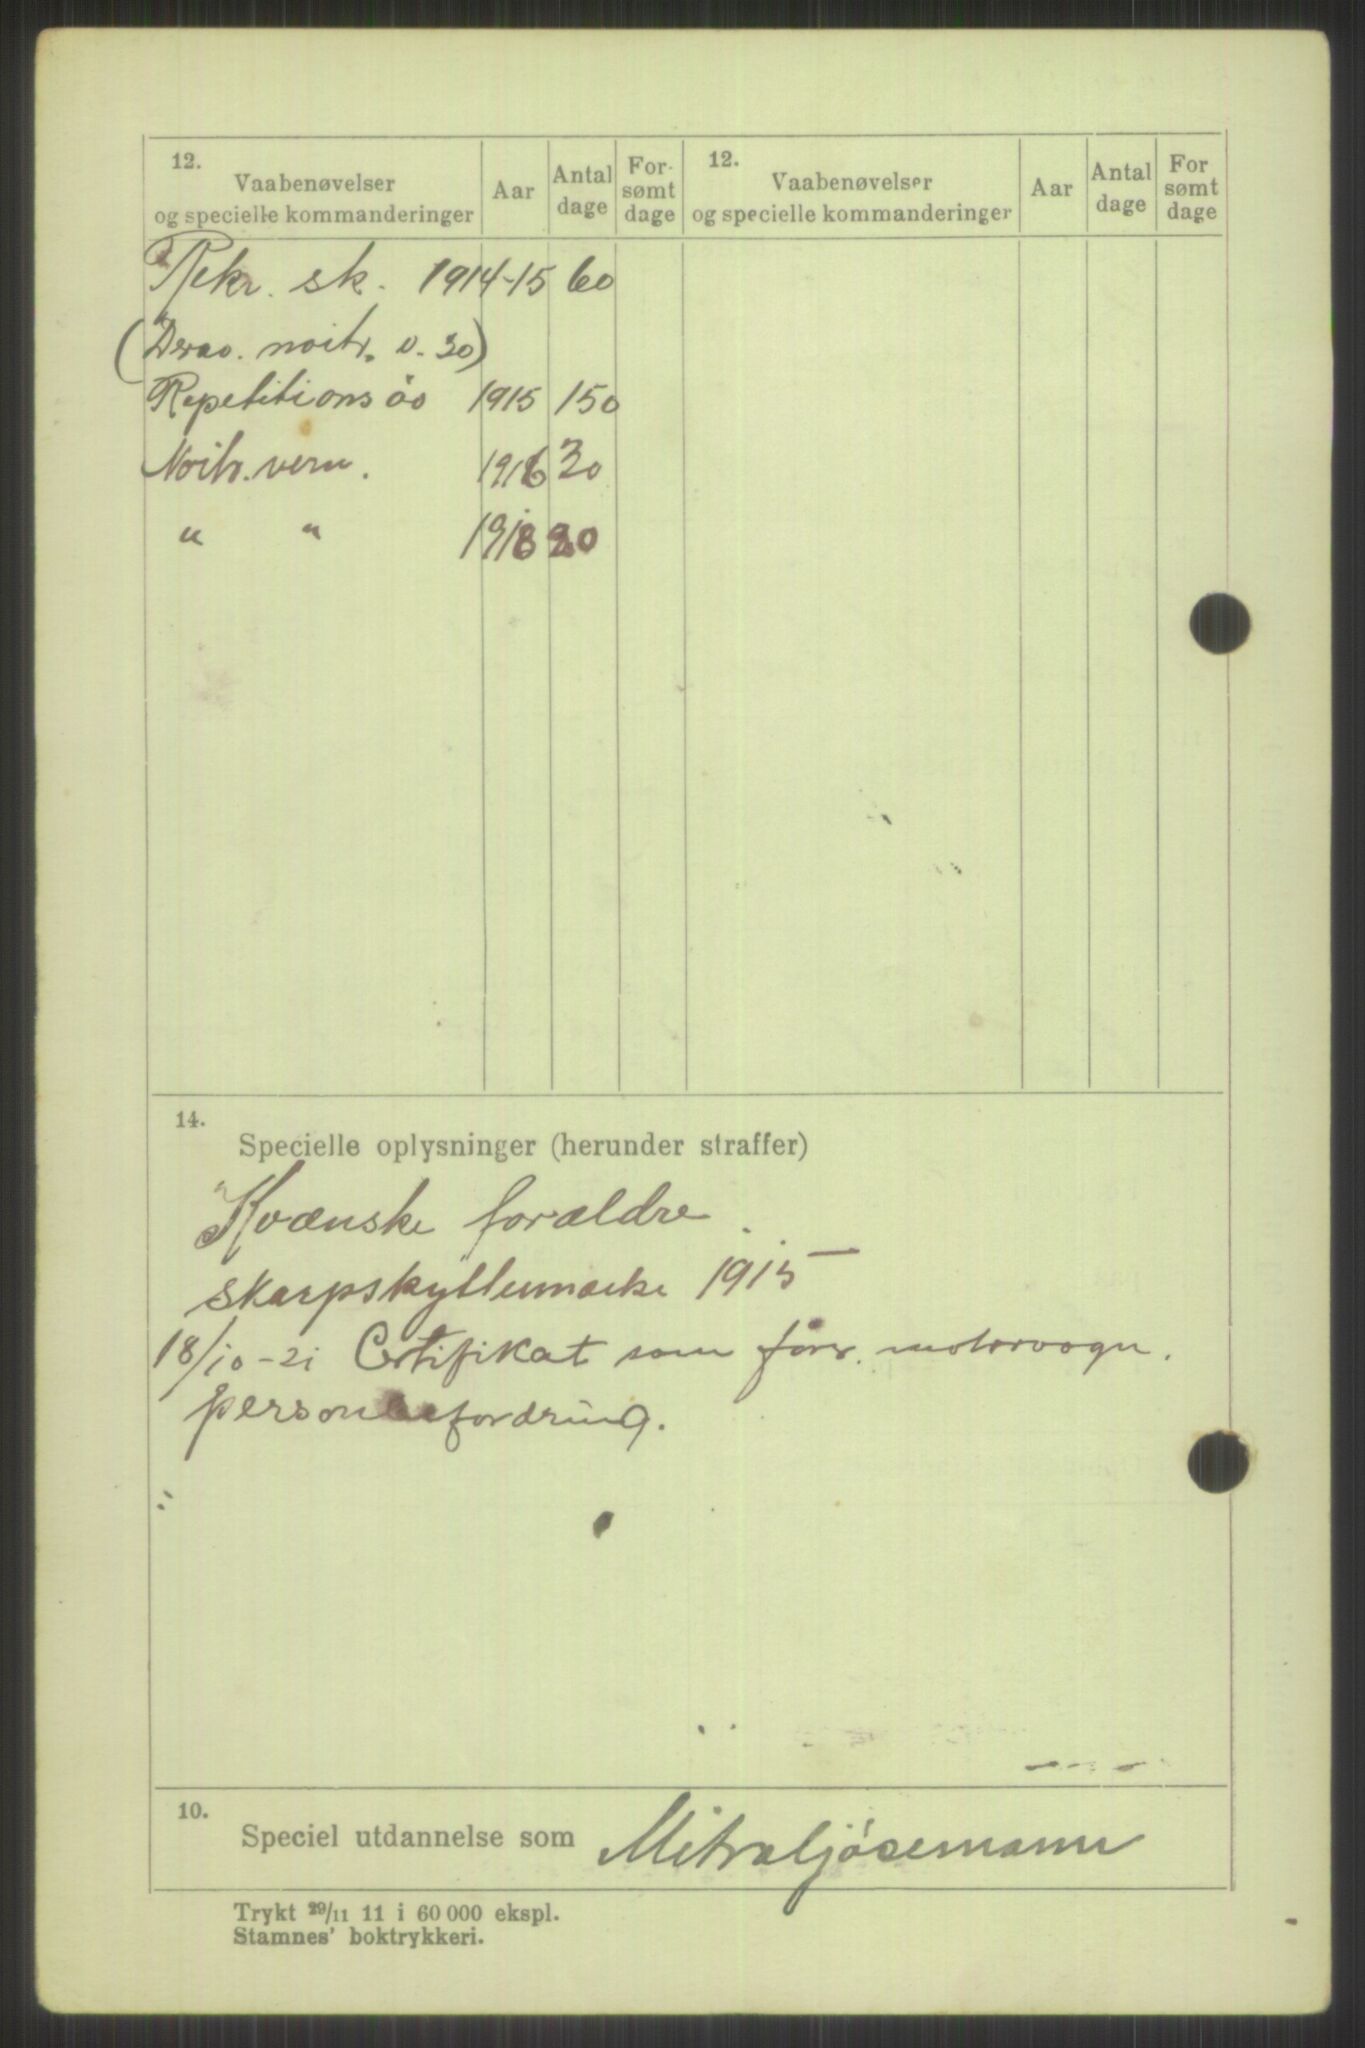 12. Vaabenøvelser og specielle kommanderinger Aar Antal dage For- sømt dage 12. Vaabenøvelser og specielle kommanderinger Aar Antal dage For sømt dage
Rekr. sk. 1914-15 60
(Derav. noitr. v. 30)
Repetitionsöv 1915 150
Noitr. vern. 1916 30
" " 1918
14.
Specielle oplysninger (herunder straffer)
Kvænske forældre
skarpskyttermærke 1915
18/10-21 Certifikat som förer. motorvogn.
personbefordring.
10.
Speciel utdannelse som Mitraljösemann
Trykt 29/11 11 i 60 000 ekspl.
Stamnes' boktrykkeri.